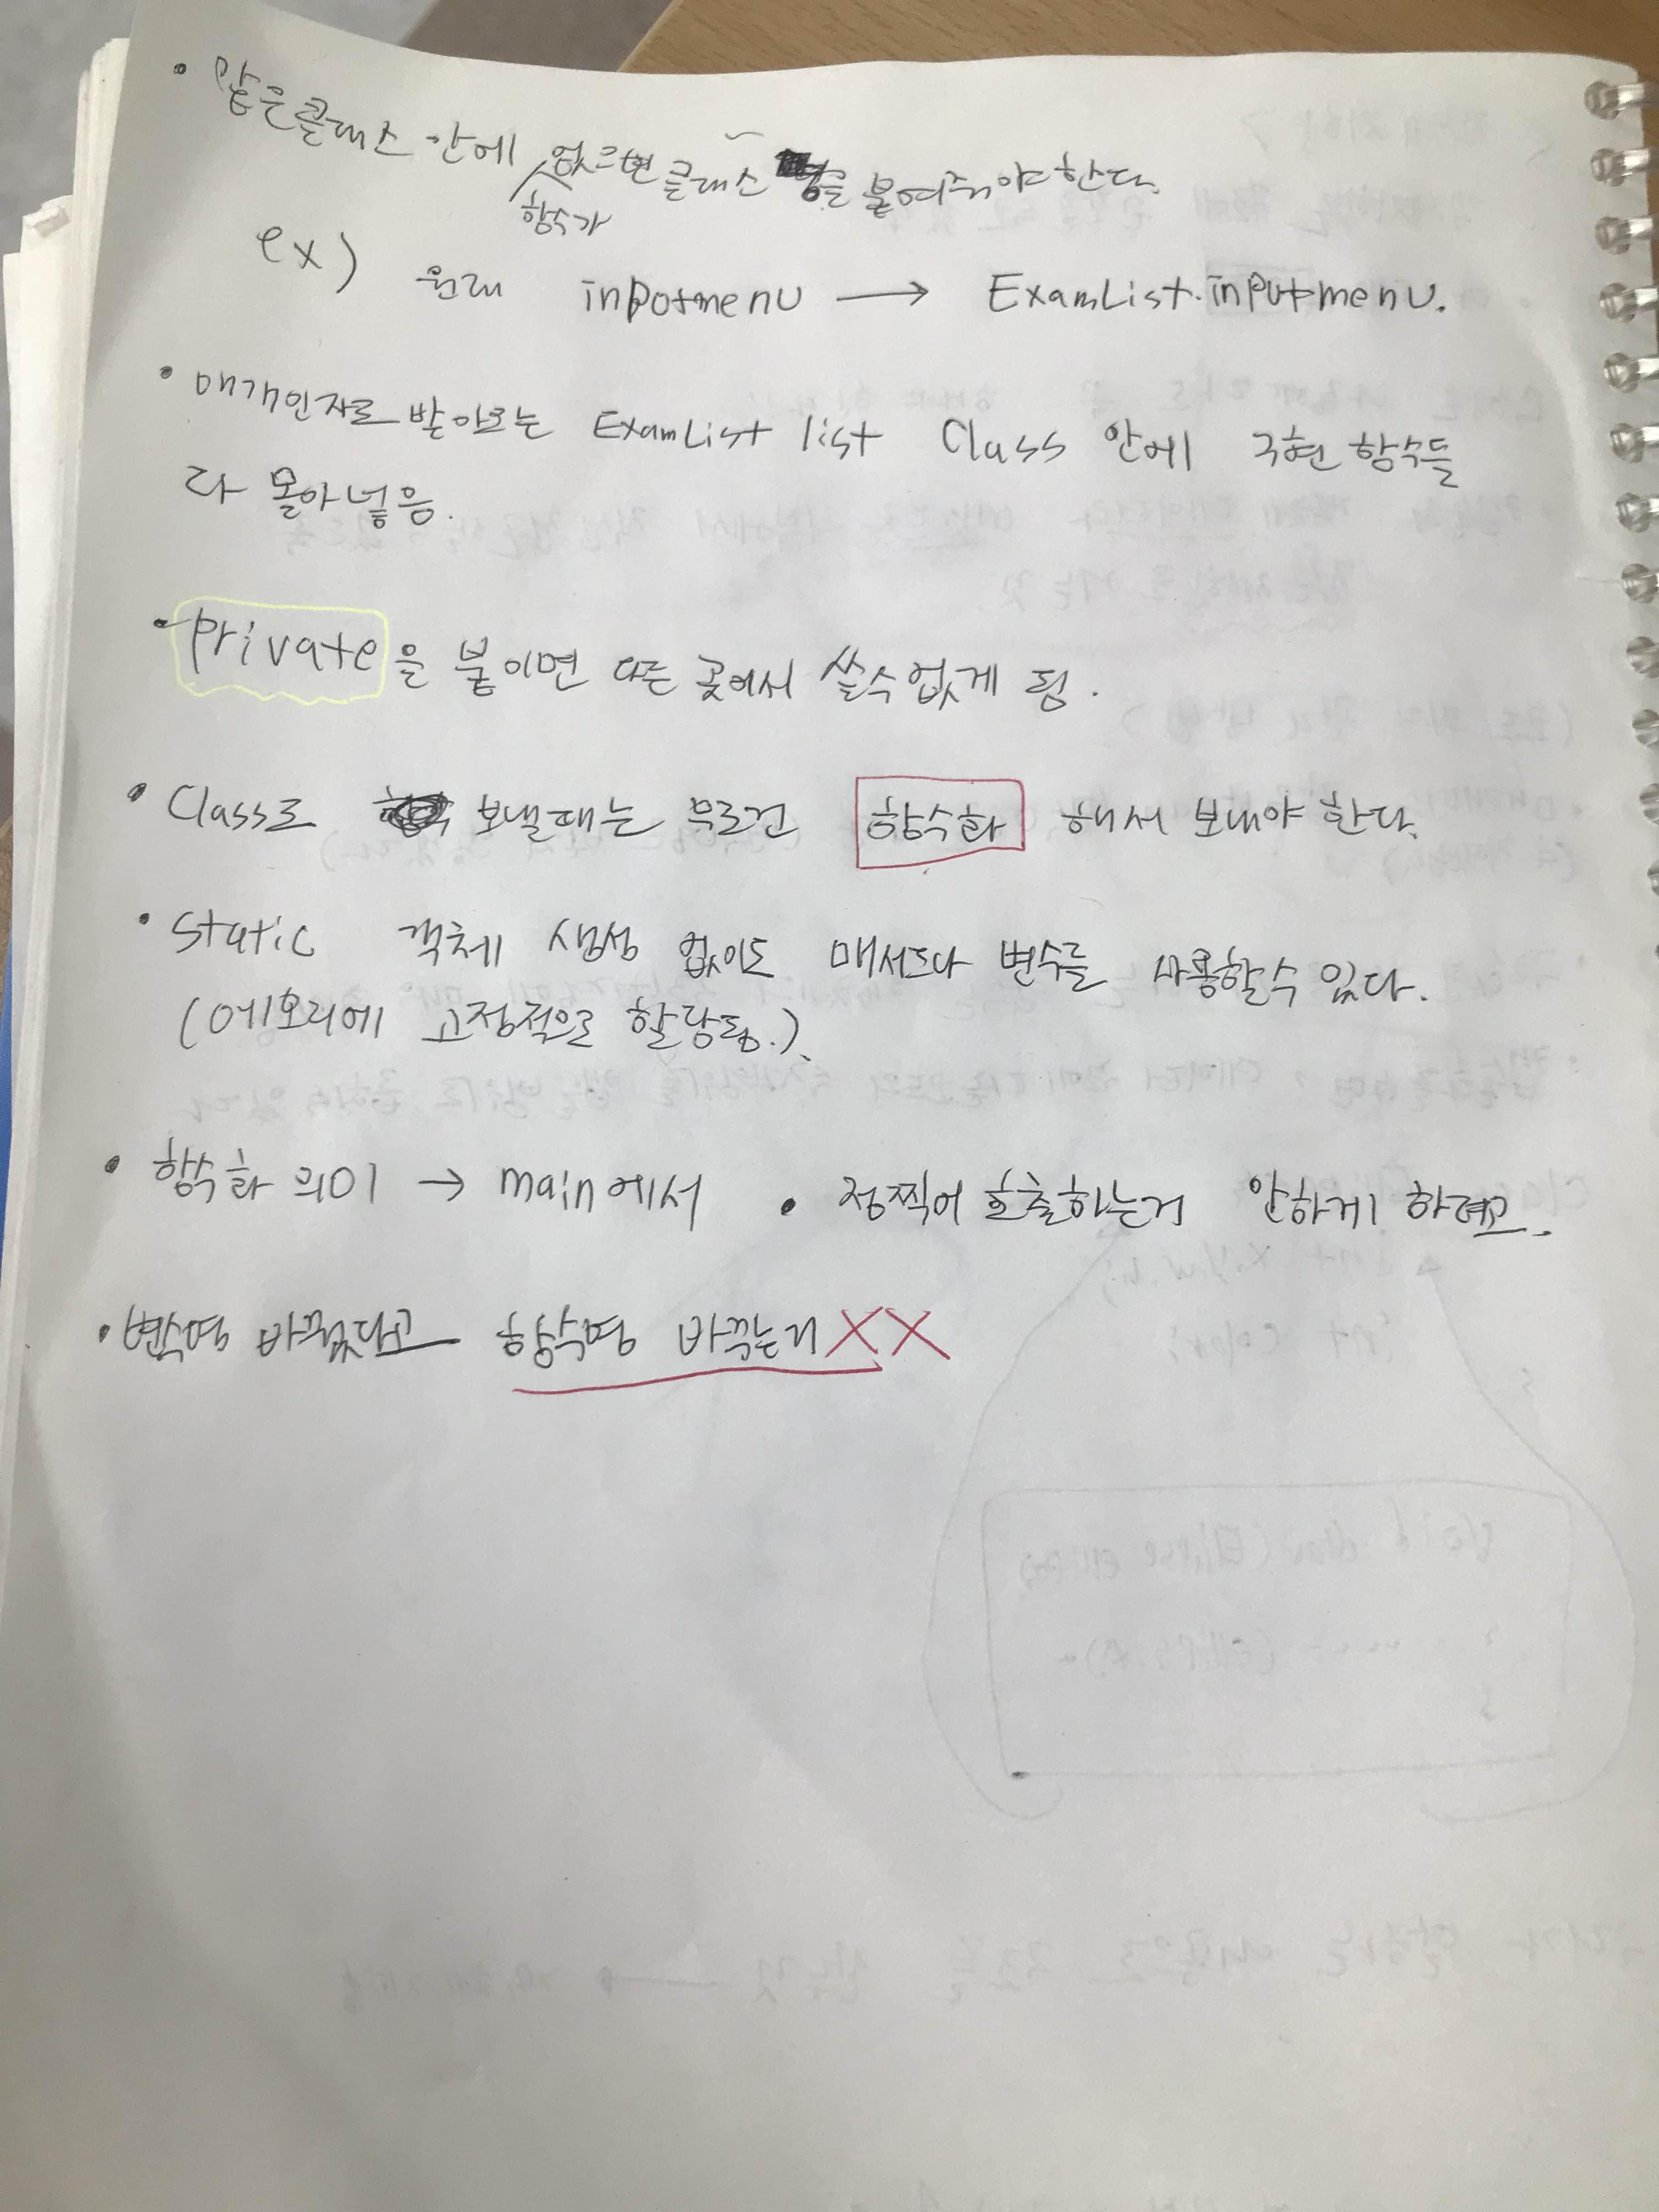 • 같은클래스 안에 함수가 없으면 클래스명을 붙여줘야한다.
ex) 원래 inputmenu → ExamList.inputmenu.
• 매개인자로 받아오는 ExamList list Class 안에 구현 함수들
다 몰아넣음.
• private을 붙이면 다른 곳에서 쓸수없게 됨.
• Class로 보낼때는 무조건 함수화 해서 보내야 한다.
• Static 객체 생성 없이도 매서드나 변수를 사용할수 있다.
(메모리에 고정적으로 할당됨.).
• 함수화 의미 → main에서 • 점찍어 호출하는거 안하게 하려고.
• 변수명 바꿨다고 함수명 바꾸는거 XX